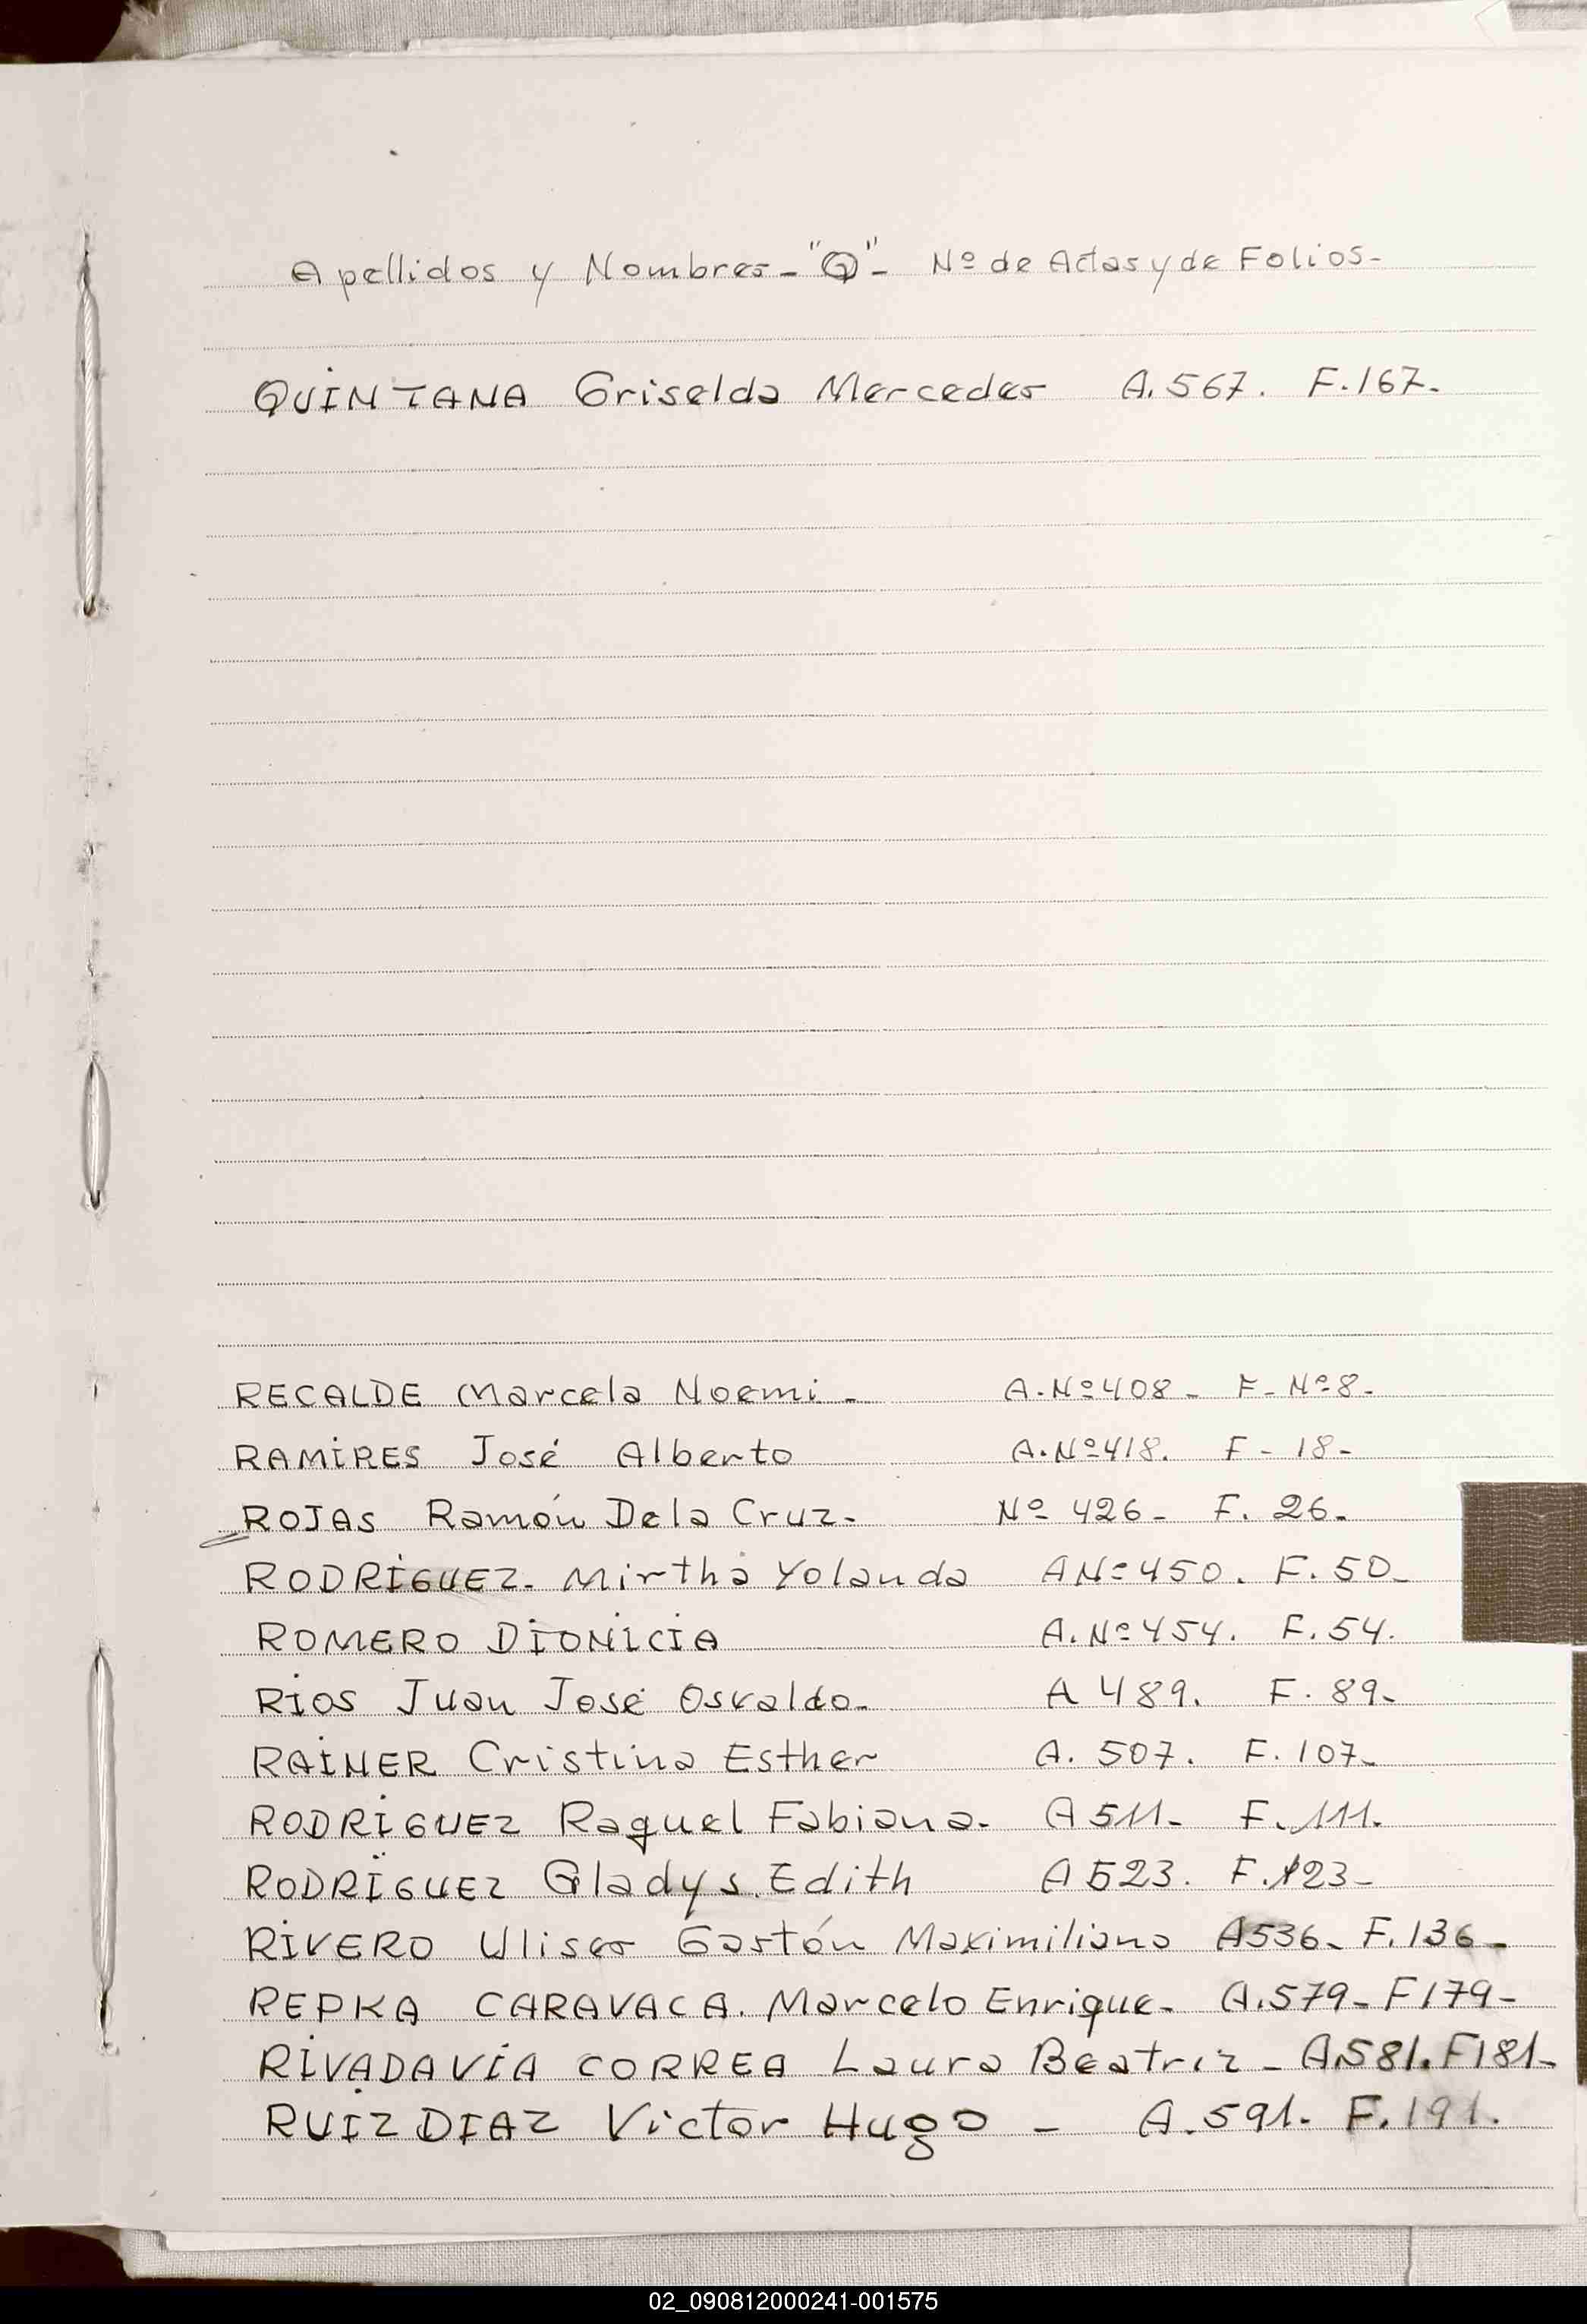 Apellidos y Nombres - "Q" - Nº de Actas y de Folios -
QUINTANA Griselda Mercedes A. 567. F. 167.
RECALDE Marcela Noemi - A. Nº 408 - F - Nº 8 -
RAMIRES José Alberto A. Nº 418. F - 18 -
ROJAS Ramón De la Cruz - Nº 426 - F. 26 -
RODRIGUEZ - Mirtha Yolanda A Nº 450. F. 50 -
ROMERO DIONICIA A. Nº 454. F. 54.
RIOS Juan José Osvaldo - A 489. F. 89 -
RAINER Cristina Esther A. 507. F. 107 -
RODRIGUEZ Raquel Fabiana - A 511 - F. 111.
RODRIGUEZ Gladys Edith A 523. F. 123 -
RIVERO Ulises Gastón Maximiliano A536 - F. 136 -
REPKA CARAVACA. Marcelo Enrique - A. 579 - F 179 -
RIVADAVIA CORREA Laura Beatriz - A. 581. F 181 -
RUIZ DIAZ Victor Hugo - A. 591. F. 191.
02_090812000241-001575